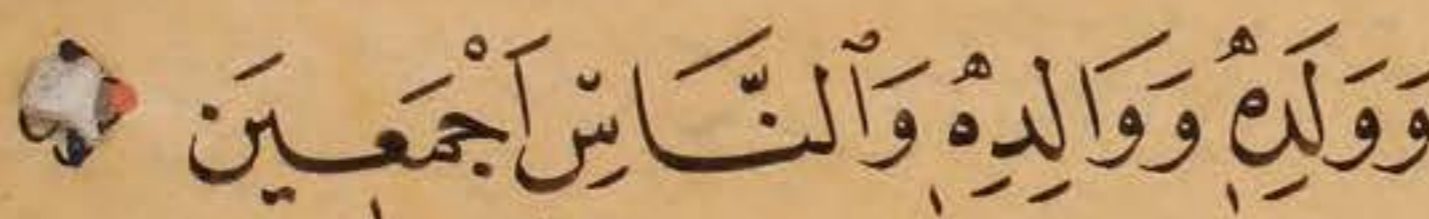 وَوَلَدِهِ وَوَالِدِهِ وَٱلنَّاسِ اَجْمَعِينَ